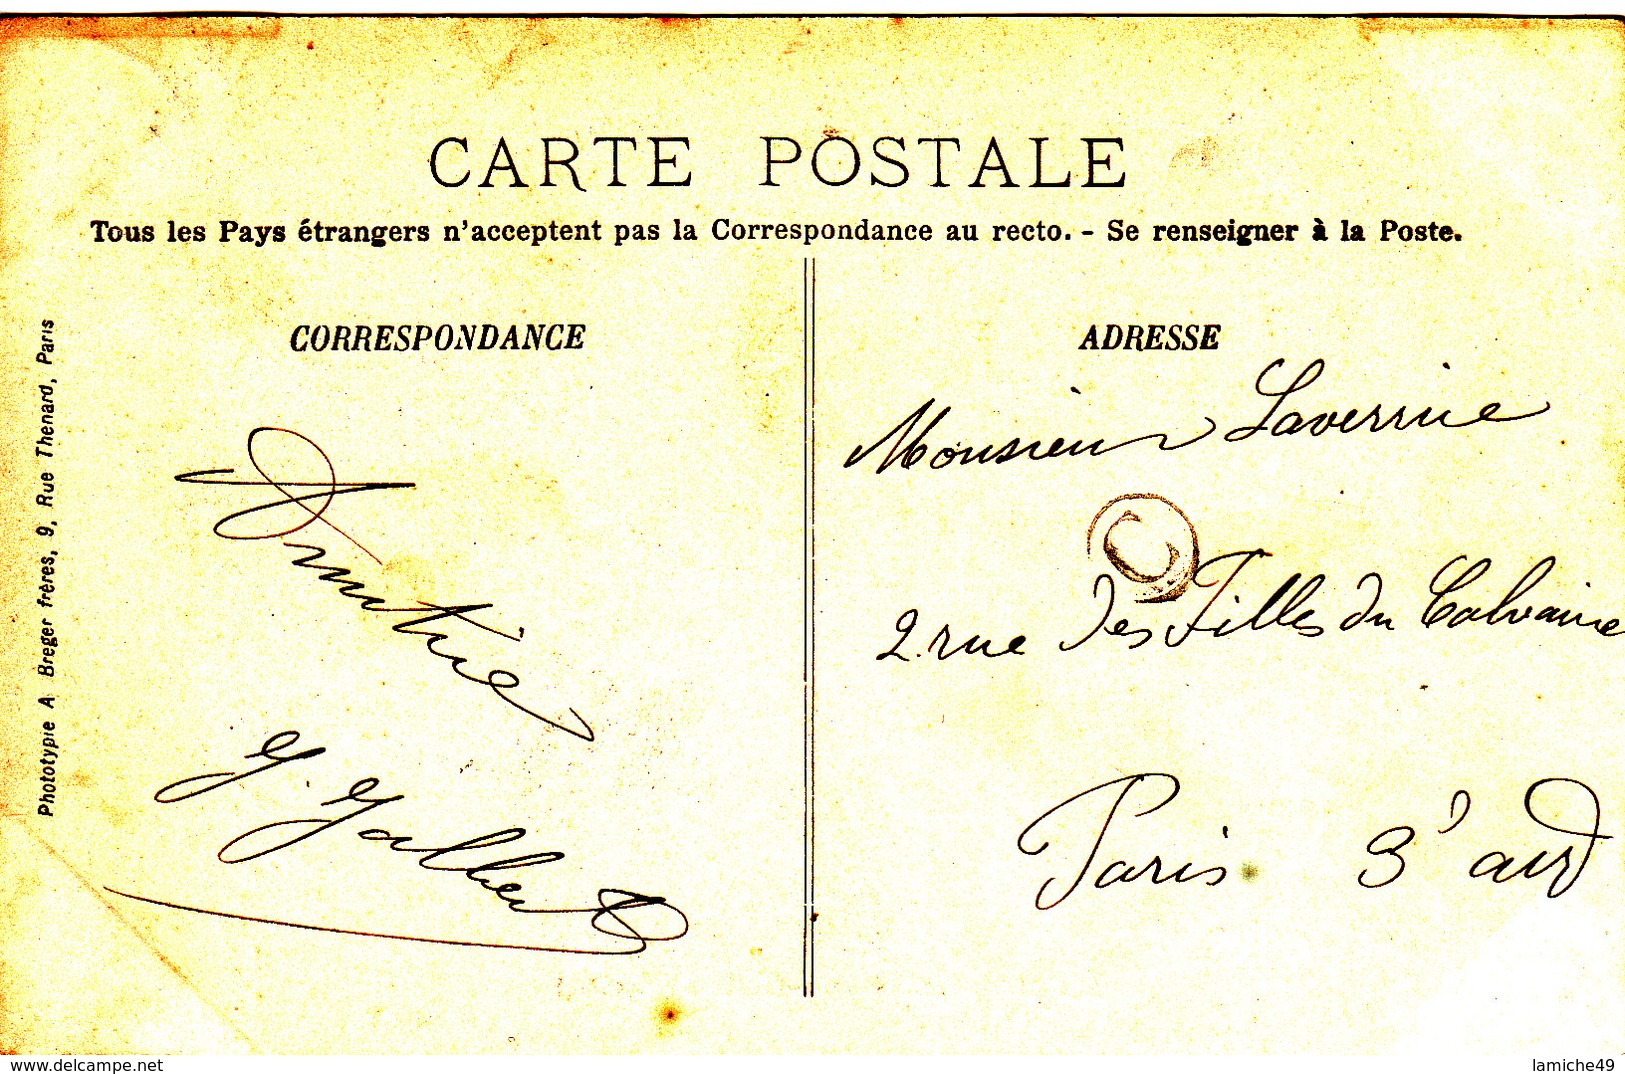 CARTE POSTALE
Tous les Pays étrangers n'acceptent pas la Correspondance au recto. - Se renseigner à la Poste.
CORRESPONDANCE
Amitié
G. Galbert
ADRESSE
Monsieur Laverrine
2 rue des Filles du Calvaire
Paris 3' ard
C
Phototypie A Breger frères, 9, Rue Thenard, Paris
delcampe.net
lamiche49